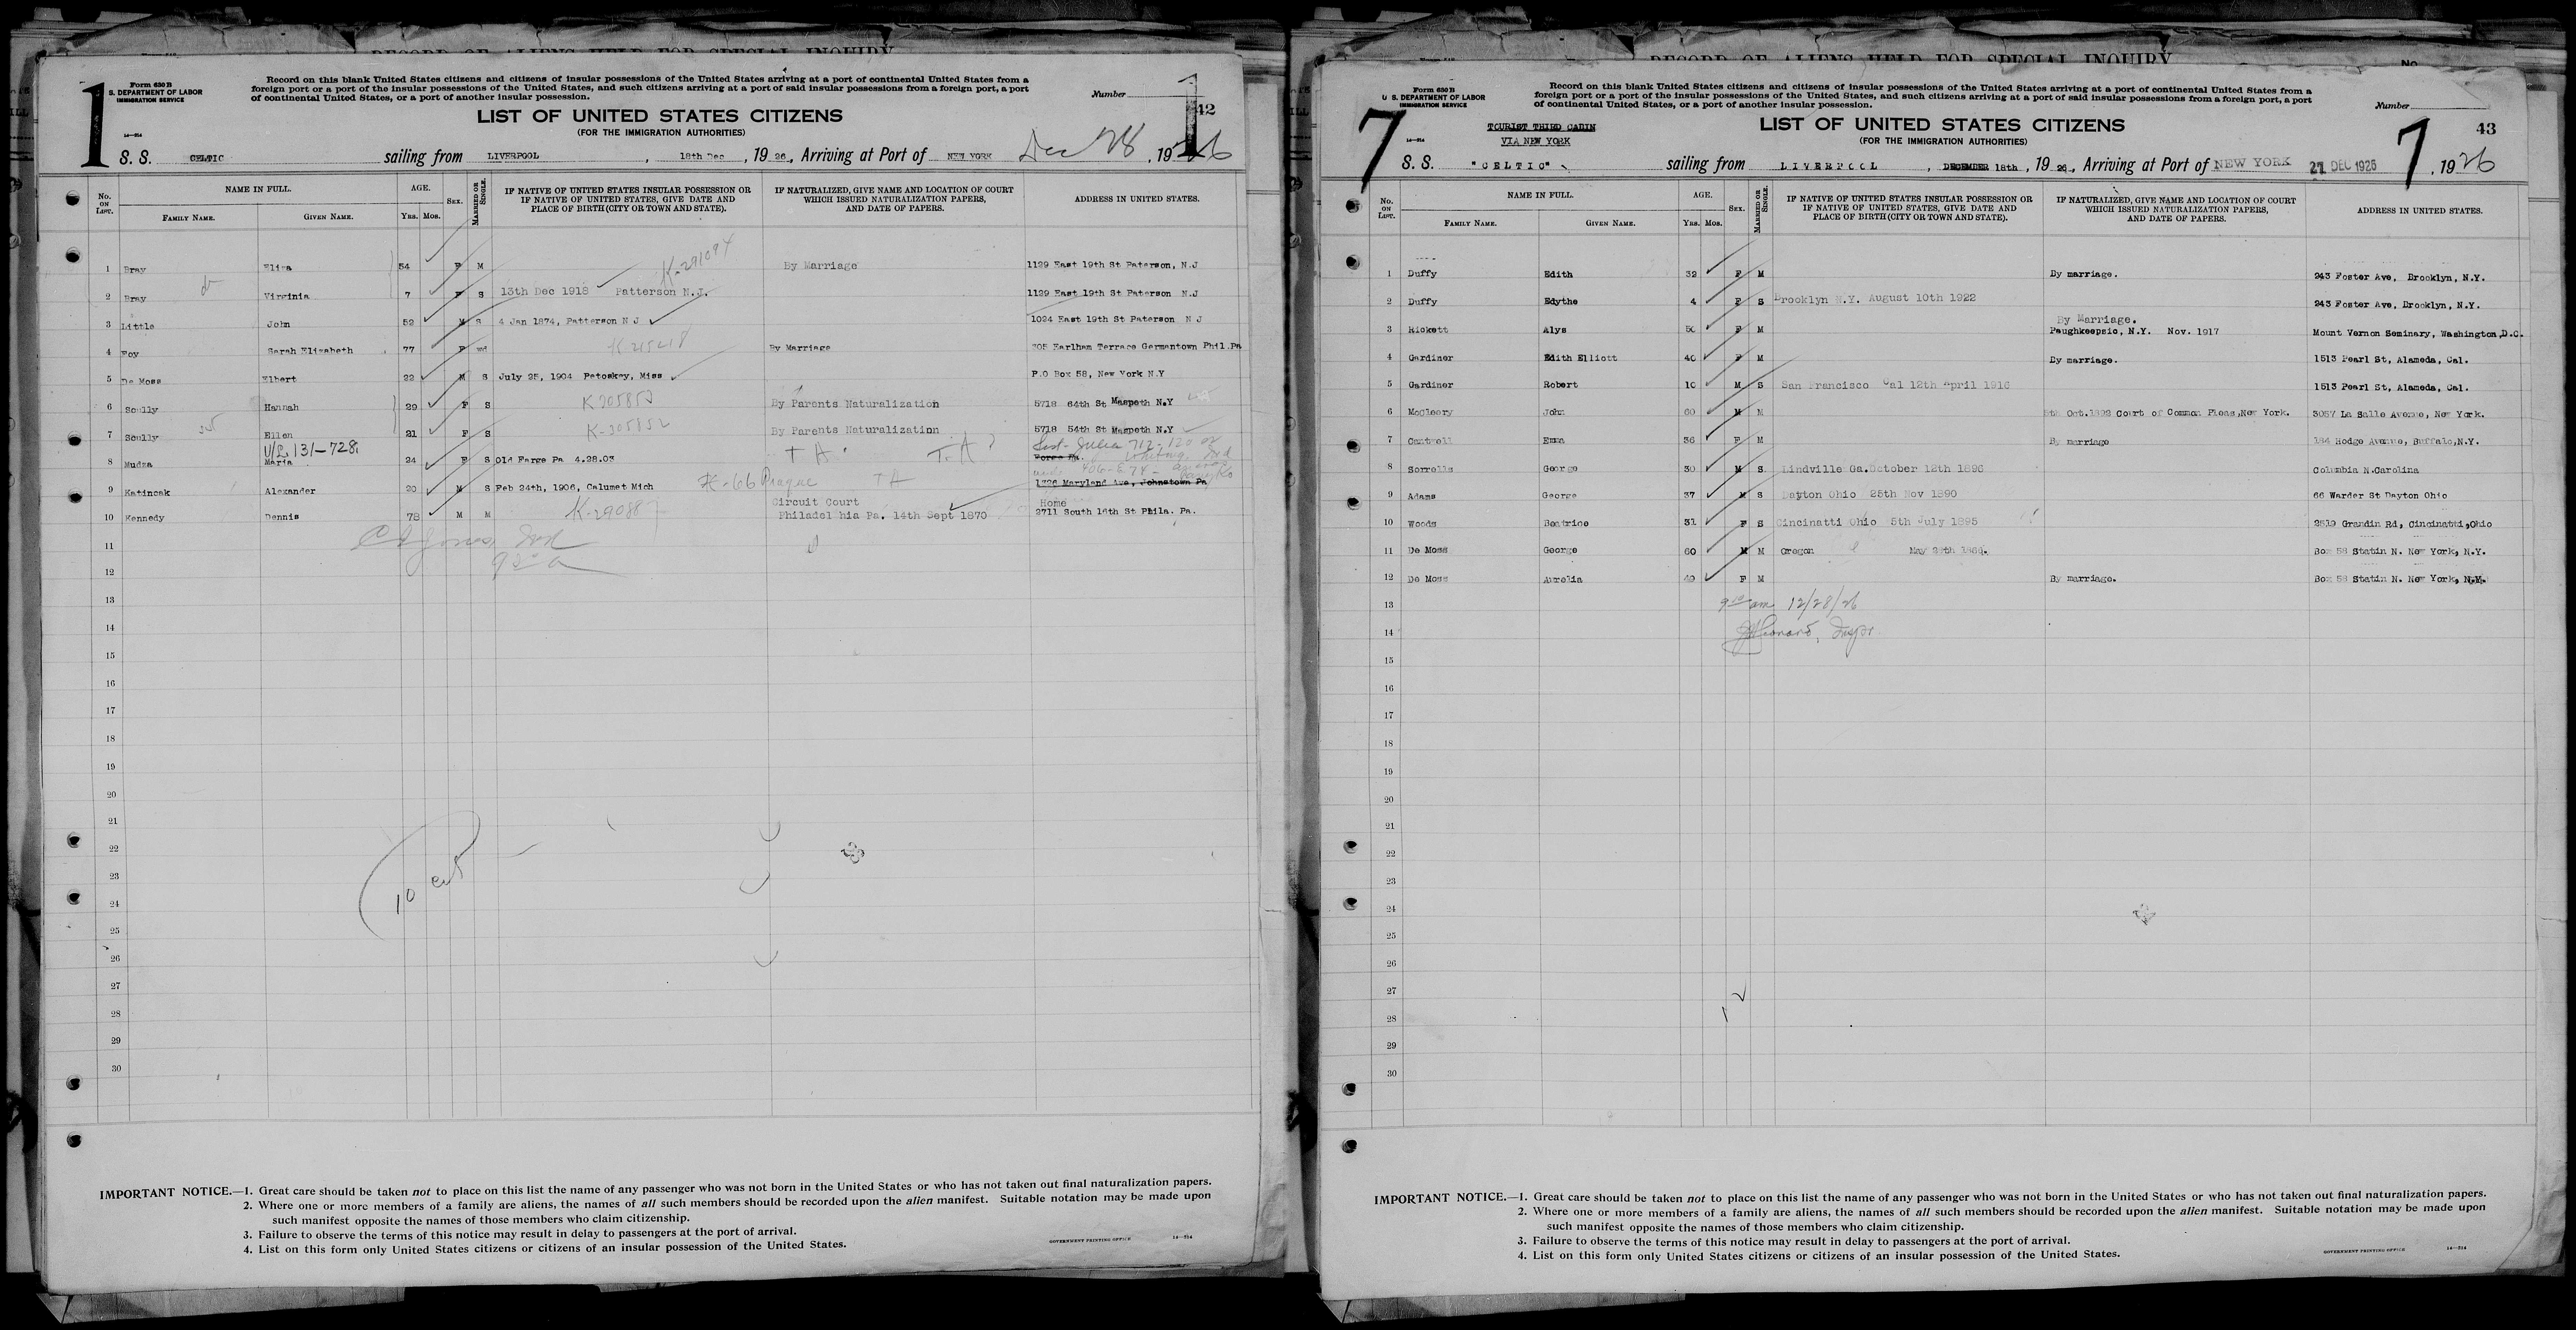 RECORD OF ALIENS HELD FOR SPECIAL INQUIRY
1
Form 630 B
S. DEPARTMENT OF LABOR
IMMIGRATION SERVICE
Record on this blank United States citizens and citizens of insular possessions of the United States arriving at a port of continental United States from a
foreign port or a port of the insular possessions of the United States, and such citizens arriving at a port of said insular possessions from a foreign port, a port
of continental United States, or a port of another insular possession.
Number
1
42
LIST OF UNITED STATES CITIZENS
(FOR THE IMMIGRATION AUTHORITIES)
14-514
S. S. CELTIC sailing from LIVERPOOL, 18th Dec, 19 26, Arriving at Port of NEW YORK Dec 28, 1926
No. ON LIST. NAME IN FULL. FAMILY NAME. GIVEN NAME. AGE. YRS. MOS. SEX. MARRIED OR SINGLE. IF NATIVE OF UNITED STATES INSULAR POSSESSION OR IF NATIVE OF UNITED STATES, GIVE DATE AND PLACE OF BIRTH (CITY OR TOWN AND STATE). IF NATURALIZED, GIVE NAME AND LOCATION OF COURT WHICH ISSUED NATURALIZATION PAPERS, AND DATE OF PAPERS. ADDRESS IN UNITED STATES.
K-291094
1 Bray Eliza 54 F M By Marriage 1129 East 19th St Paterson, N.J
2 Bray Virginia 7 F S 13th Dec 1918 Patterson N.J. 1129 East 19th St Paterson N.J
3 Little John 52 M S 4 Jan 1874, Patterson N J 1024 East 19th St Paterson N J
4 Foy Sarah Elizabeth 77 F wd K 215218 By Marriage 305 Earlham Terrace Germantown Phil.Pa
5 De Moss Elbert 22 M S July 25, 1904 Petoskey, Miss P.O Box 58, New York N.Y
6 Scully Hannah 29 F S K 305853 By Parents Naturalization 5718 64th St Maspeth N.Y
7 Scully Ellen 21 F S K-305852 By Parents Naturalization 5718 54th St Maspeth N.Y
V/L 131-728
8 Mudza Maria 24 F S Old Farge Pa 4.28.03 T A T. A ? Forge Pa.
9 Katincak Alexander 20 M S Feb 24th, 1906, Calumet Mich K-66 Prague TA 1326 Maryland Ave, Johnstown Pa
10 Kennedy Dennis 78 M M K-29088 Circuit Court Philadelphia Pa. 14th Sept 1870 Home 2711 South 16th St Phila. Pa.
11
12
13
14
15
16
17
18
19
20
21
22
23
24
25
26
27
28
29
30
10
IMPORTANT NOTICE.—1. Great care should be taken not to place on this list the name of any passenger who was not born in the United States or who has not taken out final naturalization papers.
2. Where one or more members of a family are aliens, the names of all such members should be recorded upon the alien manifest. Suitable notation may be made upon
such manifest opposite the names of those members who claim citizenship.
3. Failure to observe the terms of this notice may result in delay to passengers at the port of arrival.
4. List on this form only United States citizens or citizens of an insular possession of the United States.
GOVERNMENT PRINTING OFFICE 14-514
RECORD OF ALIENS HELD FOR SPECIAL INQUIRY
No.
7
Form 630 B
U. S. DEPARTMENT OF LABOR
IMMIGRATION SERVICE
Record on this blank United States citizens and citizens of insular possessions of the United States arriving at a port of continental United States from a
foreign port or a port of the insular possessions of the United States, and such citizens arriving at a port of said insular possessions from a foreign port, a port
of continental United States, or a port of another insular possession.
Number
7
43
TOURIST THIRD CABIN
VIA NEW YORK
LIST OF UNITED STATES CITIZENS
(FOR THE IMMIGRATION AUTHORITIES)
14-514
S. S. "CELTIC" sailing from LIVERPOOL, DECEMBER 18th, 19 26, Arriving at Port of NEW YORK 27 DEC 1926, 1926
No. ON LIST. NAME IN FULL. FAMILY NAME. GIVEN NAME. AGE. YRS. MOS. SEX. MARRIED OR SINGLE. IF NATIVE OF UNITED STATES INSULAR POSSESSION OR IF NATIVE OF UNITED STATES, GIVE DATE AND PLACE OF BIRTH (CITY OR TOWN AND STATE). IF NATURALIZED, GIVE NAME AND LOCATION OF COURT WHICH ISSUED NATURALIZATION PAPERS, AND DATE OF PAPERS. ADDRESS IN UNITED STATES.
1 Duffy Edith 32 F M By marriage. 243 Foster Ave, Brooklyn, N.Y.
2 Duffy Edythe 4 F S Brooklyn N.Y. August 10th 1922 243 Foster Ave, Brooklyn, N.Y.
3 Rickett Alys 50 F M By Marriage. Paughkeepsie, N.Y. Nov. 1917 Mount Vernon Seminary, Washington,D.C.
4 Gardiner Edith Elliott 40 F M By marriage. 1513 Pearl St, Alameda, Cal.
5 Gardiner Robert 10 M S San Francisco Cal 12th April 1916 1513 Pearl St, Alameda, Cal.
6 McCleery John 60 M M 5th Oct.1892 Court of Common Pleas,New York. 3057 La Salle Avenue, New York.
7 Cantwell Emma 36 F M By marriage 184 Hodge Avenue, Buffalo,N.Y.
8 Sorrells George 30 M S Lindville Ga.October 12th 1896 Columbia N.Carolina
9 Adams George 37 M S Dayton Ohio 25th Nov 1890 66 Warder St Dayton Ohio
10 Woods Beatrice 31 F S Cincinatti Ohio 5th July 1895 2519 Grandin Rd, Cincinatti,Ohio
11 De Moss George 60 M M Oregon May 29th 1866. Box 58 Statin N. New York, N.Y.
12 De Moss Aurelia 49 F M By marriage. Box 58 Statin N. New York, N.Y.
13 9 am 12/28/26
14
15
16
17
18
19
20
21
22
23
24
25
26
27
28
29
30
12
IMPORTANT NOTICE.—1. Great care should be taken not to place on this list the name of any passenger who was not born in the United States or who has not taken out final naturalization papers.
2. Where one or more members of a family are aliens, the names of all such members should be recorded upon the alien manifest. Suitable notation may be made upon
such manifest opposite the names of those members who claim citizenship.
3. Failure to observe the terms of this notice may result in delay to passengers at the port of arrival.
4. List on this form only United States citizens or citizens of an insular possession of the United States.
GOVERNMENT PRINTING OFFICE 14-514